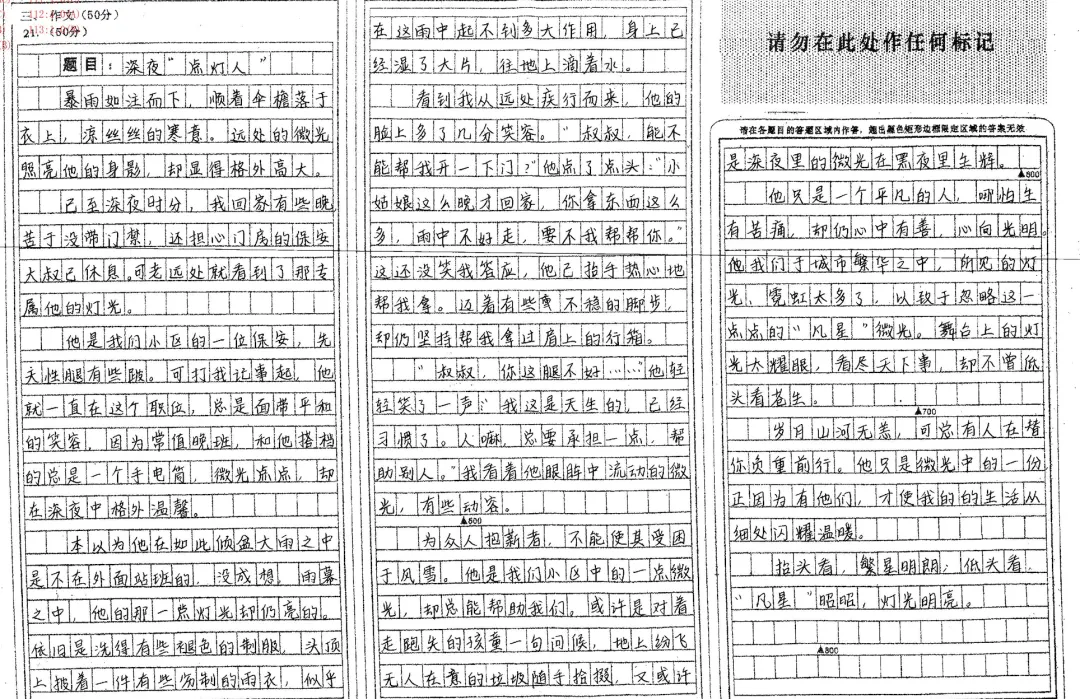 三、作文(50分)
21. (50分)
题目：深夜“点灯人”
暴雨如注而下，顺着伞檐落于
衣上，凉丝丝的寒意。远处的微光
照亮他的身影，却显得格外高大。
已至深夜时分，我回家有些晚
苦于没带门禁，还担心门房的保安
大叔已休息。可老远处就看到了那专
属他的灯光。
他是我们小区的一位保安，先
天性腿有些跛。可打我记事起，他
就一直在这个职位，总是面带平和
的笑容，因为常值晚班，和他搭档
的总是一个手电筒，微光点点，却
在深夜中格外温馨。
本以为他在如此倾盆大雨之中
是不在外面站班的，没成想，雨幕
之中，他的那一点灯光却仍亮的。
依旧是洗得有些褪色的制服，头顶
上披着一件有些劣制的雨衣，似乎
在这雨中起不到多大作用，身上已
经湿了大片，往地上滴着水。
看到我从远处疾行而来，他的
脸上多了几分笑容。“叔叔，能不
能帮我开一下门？”他点了点头：“小
姑娘这么晚才回家，你拿东西这么
多，雨中不好走，要不我帮帮你。”
这还没笑我答应，他已抬手热心地
帮我拿。迈着有些不稳的脚步，
却仍坚持帮我拿过肩上的行箱。
“叔叔，你这腿不好……”他轻
轻笑了一声：“我这是天生的，已经
习惯了。人嘛，总要承担一点，帮
助别人。”我看着他眼眸中流动的微
光，有些动容。
▲500
为众人抱薪者，不能使其受困
于风雪。他是我们小区中的一点微
光，却总能帮助我们。或许是对着
走跑失的孩童一句问候，地上纷飞
无人在意的垃圾随手拾掇，又或许
请勿在此处作任何标记
请在各题目的答题区域内作答，超出颜色矩形边框限定区域的答案无效
是深夜里的微光在黑夜里生辉。
▲600
他只是一个平凡的人，哪怕生
有苦痛，却仍心中有善，心向光明。
他我们于城市繁华之中，所见的灯
光、霓虹太多了，以致于忽略这一
点点的“凡星”微光。舞台上的灯
光太耀眼，看尽天下事，却不曾低
头看苍生。
▲700
岁月山河无恙，可总有人在替
你负重前行。他只是微光中的一份
正因为有他们，才使我的的生活从
细处闪耀温暖。
抬头看，繁星明朗；低头看，
“凡星”昭昭，灯光明亮。
▲800